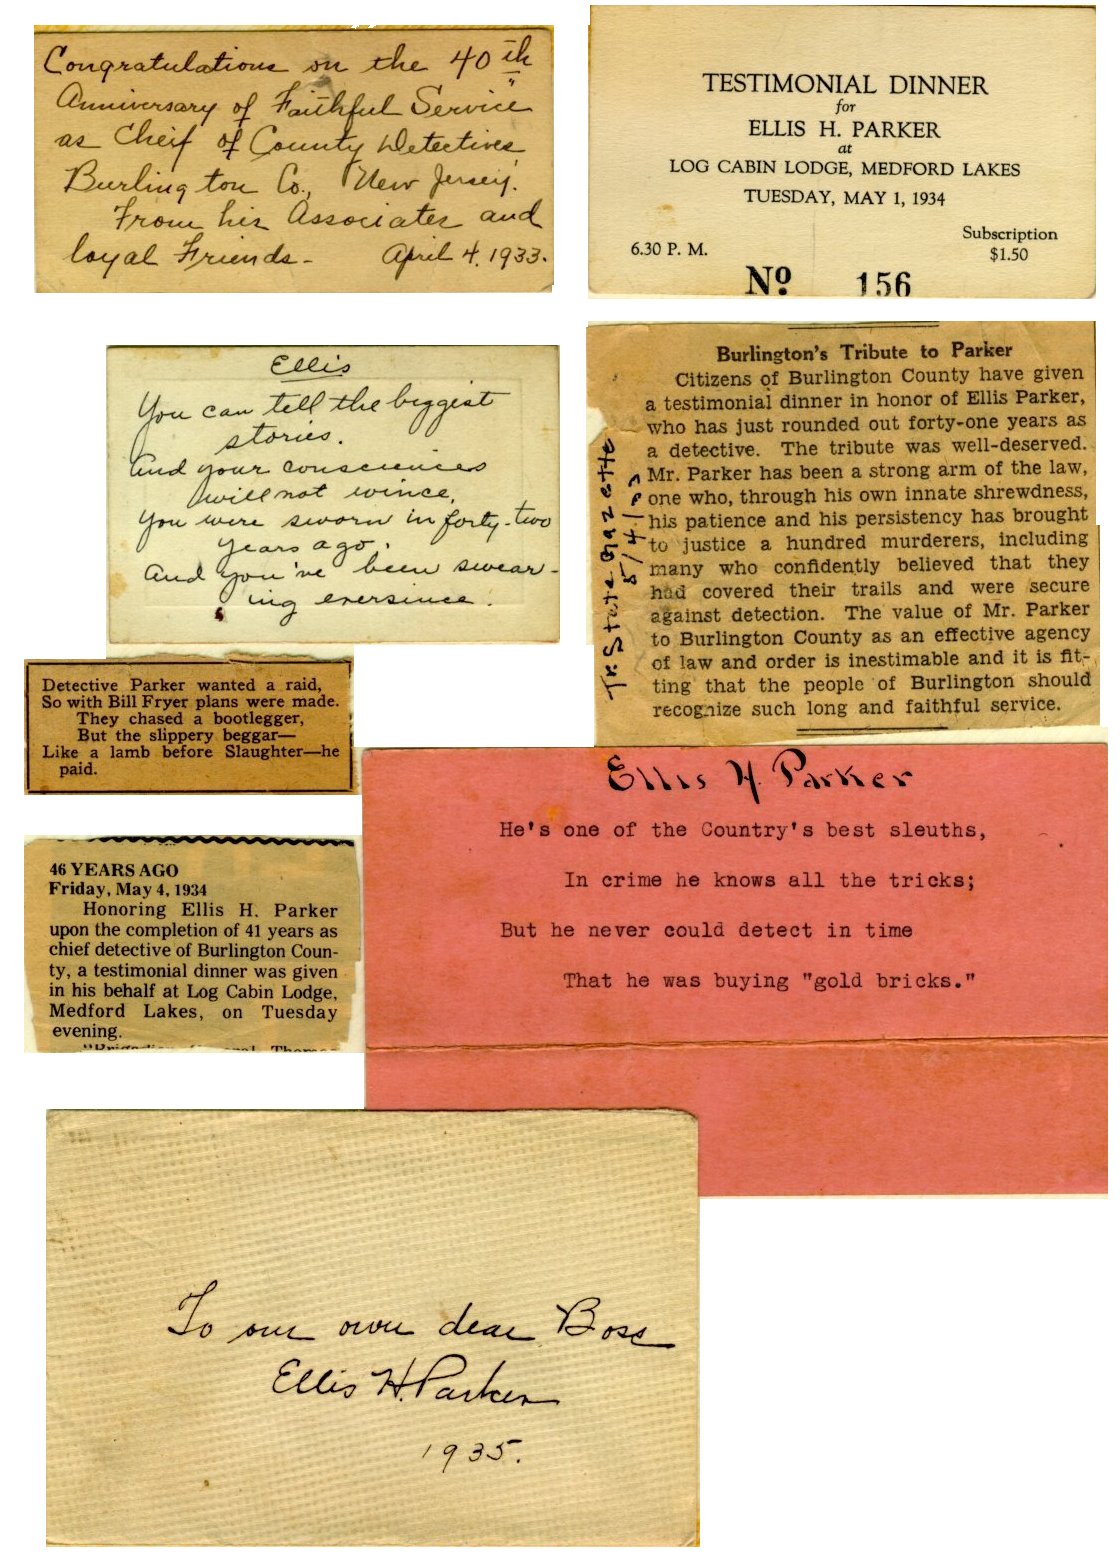 Congratulations on the 40th
Anniversary of Faithful Service
as Cheif of County Detectives
Burlington Co., New Jersey.
From his Associates and
loyal Friends - April 4, 1933.
TESTIMONIAL DINNER
for
ELLIS H. PARKER
at
LOG CABIN LODGE, MEDFORD LAKES
TUESDAY, MAY 1, 1934
Subscription
6.30 P. M. $1.50
Nº 156
Ellis
You can tell the biggest
stories.
And your consciences
will not wince,
You were sworn in forty-two
years ago.
And you've been swear-
ing eversince.
Burlington's Tribute to Parker
Citizens of Burlington County have given
a testimonial dinner in honor of Ellis Parker,
who has just rounded out forty-one years as
a detective. The tribute was well-deserved.
Mr. Parker has been a strong arm of the law,
one who, through his own innate shrewdness,
his patience and his persistency has brought
to justice a hundred murderers, including
many who confidently believed that they
had covered their trails and were secure
against detection. The value of Mr. Parker
to Burlington County as an effective agency
of law and order is inestimable and it is fit-
ting that the people of Burlington should
recognize such long and faithful service.
Tr. State Gazette
5/4/
Detective Parker wanted a raid,
So with Bill Fryer plans were made.
They chased a bootlegger,
But the slippery beggar—
Like a lamb before Slaughter—he
paid.
Ellis H. Parker
He's one of the Country's best sleuths,
In crime he knows all the tricks;
But he never could detect in time
That he was buying "gold bricks."
46 YEARS AGO
Friday, May 4, 1934
Honoring Ellis H. Parker
upon the completion of 41 years as
chief detective of Burlington Coun-
ty, a testimonial dinner was given
in his behalf at Log Cabin Lodge,
Medford Lakes, on Tuesday
evening.
To our own dear Boss
Ellis H. Parker
1935.